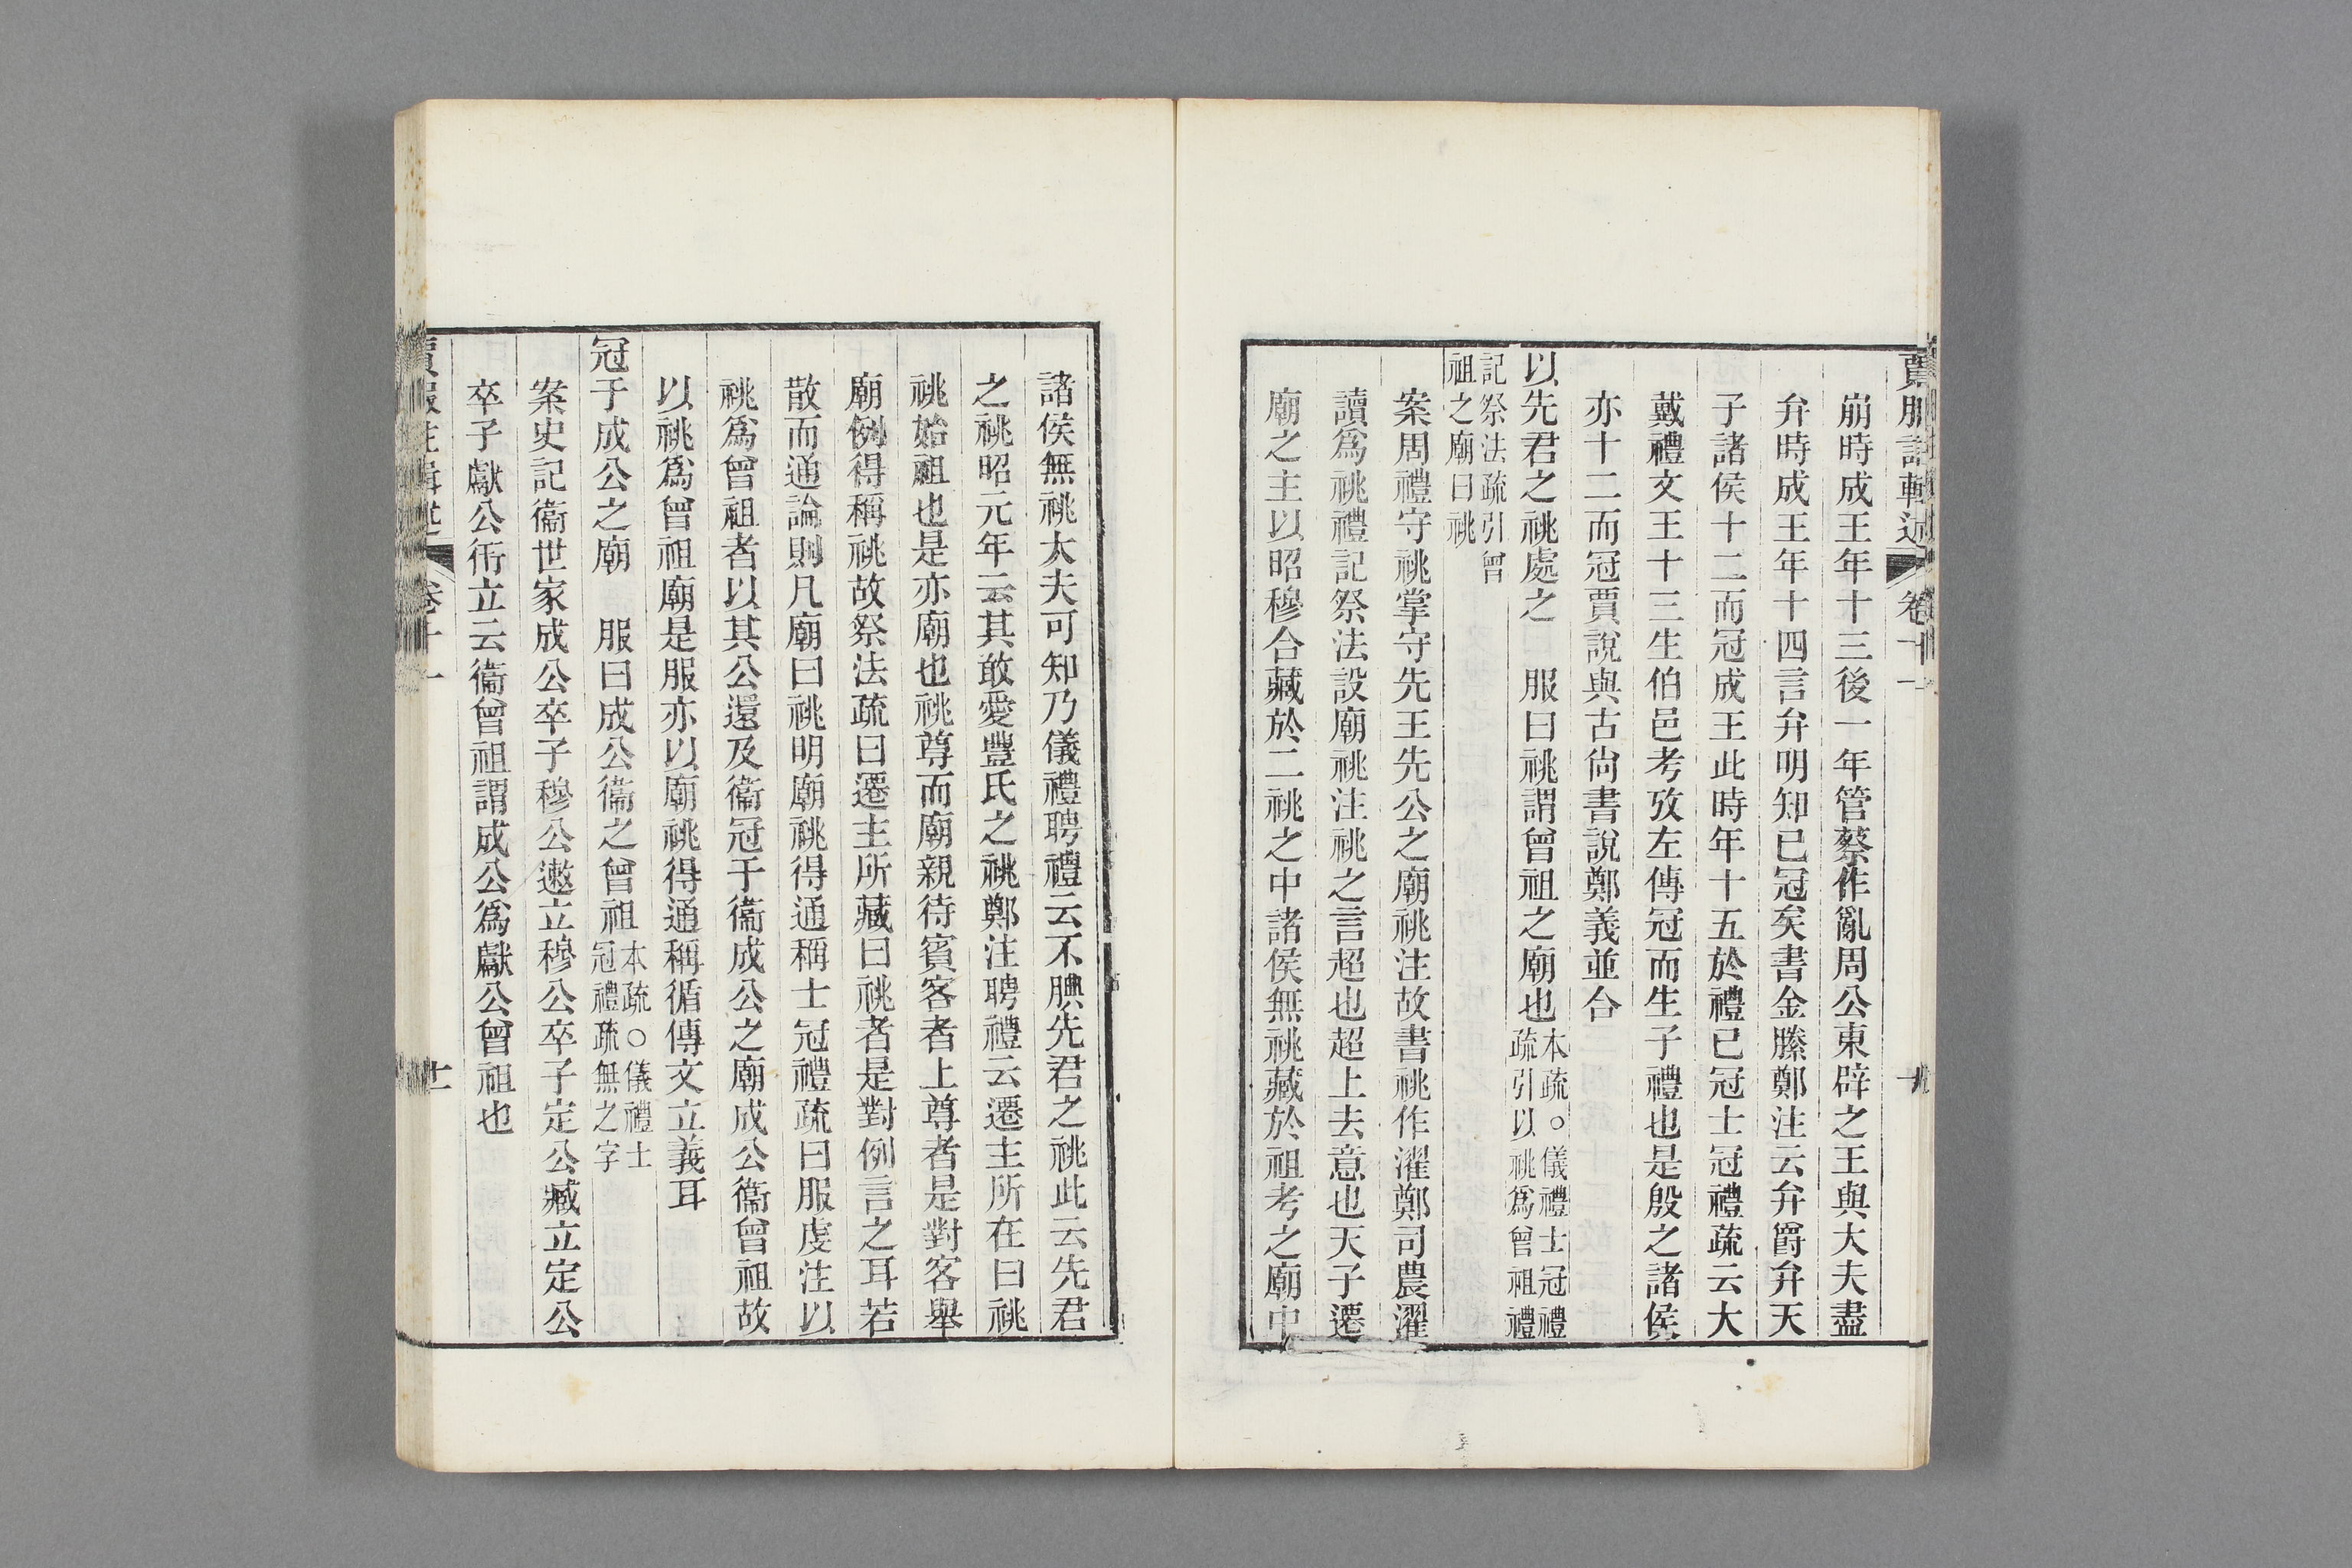 崩時成王年十三後一年管蔡作亂周公東辟之王與大夫盡
弁時成王年十四言弁明知已冠矣書金縢鄭注云弁爵弁天
子諸侯十二而冠成王此時年十五於禮已冠士冠禮疏云大
戴禮文王十三生伯邑考攷左傳冠而生子禮也是殷之諸侯
亦十二而冠賈說與古尙書說鄭義並合
以先君之祧處之 服曰祧謂曾祖之廟也本疏○儀禮士冠禮疏引以祧爲曾祖禮
記祭法疏引曾祖之廟曰祧
案周禮守祧掌守先王先公之廟祧注故書祧作濯鄭司農濯
讀爲祧禮記祭法設廟祧注祧之言超也超上去意也天子遷
廟之主以昭穆合藏於二祧之中諸侯無祧藏於祖考之廟中
諸侯無祧太夫可知乃儀禮聘禮云不腆先君之祧此云先君
之祧昭元年云其敢愛豐氏之祧鄭注聘禮云遷主所在曰祧
祧始祖也是亦廟也祧尊而廟親待賓客者上尊者是對客舉
廟例得稱祧故祭法疏曰遷主所藏曰祧者是對例言之耳若
散而通論則凡廟曰祧明廟祧得通稱士冠禮疏曰服虔注以
祧爲曾祖者以其公還及衞冠于衞成公之廟成公衞曾祖故
以祧爲曾祖廟是服亦以廟祧得通稱循傳文立義耳
冠于成公之廟 服曰成公衞之曾祖本疏○儀禮士冠禮疏無之字
案史記衞世家成公卒子穆公遬立穆公卒子定公臧立定公
卒子獻公衎立云衞曾祖謂成公爲獻公曾祖也